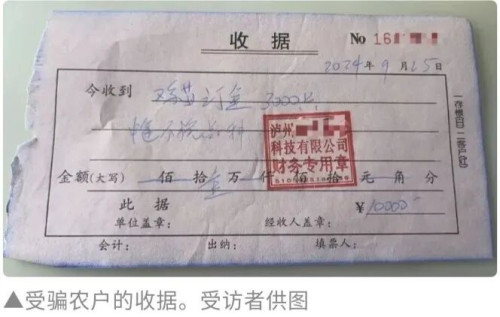 收据
No 16
2024年9月25日
今收到 鸡苗订金 3000只
泸州
科技有限公司
财务专用章
金额(大写) 佰 拾 壹 万 仟 佰 拾 元 角 分
此据 ¥10000
单位盖章: 经收人盖章:
会计: 出纳: 填票人:
▲受骗农户的收据。受访者供图